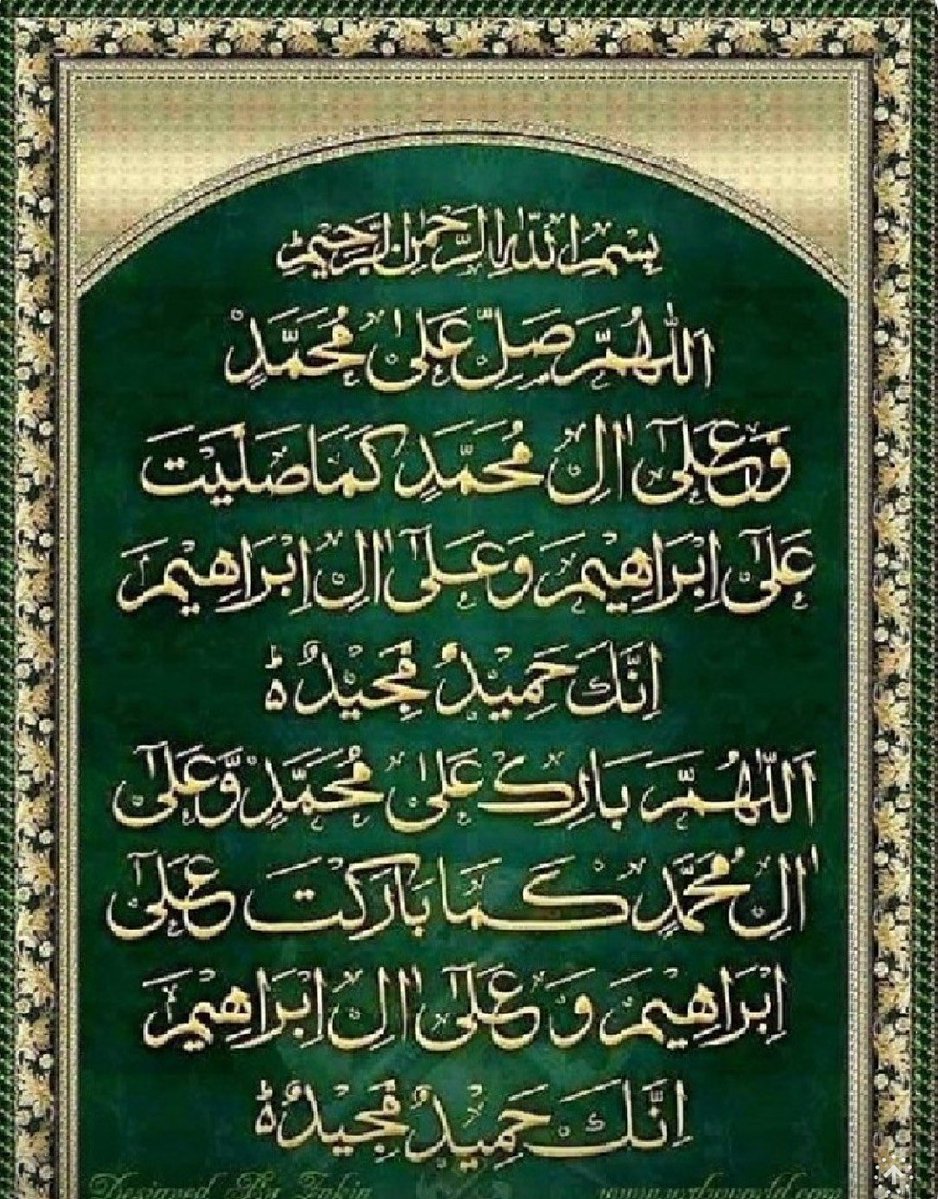 بِسْمِ اللهِ الرَّحْمٰنِ الرَّحِيْمِ
اَللّٰهُمَّ صَلِّ عَلٰى مُحَمَّدٍ
وَّعَلٰٓى اٰلِ مُحَمَّدٍ كَمَا صَلَّيْتَ
عَلٰٓى اِبْرَاهِيْمَ وَعَلٰٓى اٰلِ اِبْرَاهِيْمَ
اِنَّكَ حَمِيْدٌ مَّجِيْدٌ ؕ
اَللّٰهُمَّ بَارِكْ عَلٰى مُحَمَّدٍ وَّعَلٰٓى
اٰلِ مُحَمَّدٍ كَمَا بَارَكْتَ عَلٰٓى
اِبْرَاهِيْمَ وَعَلٰٓى اٰلِ اِبْرَاهِيْمَ
اِنَّكَ حَمِيْدٌ مَّجِيْدٌ ؕ
Designed By